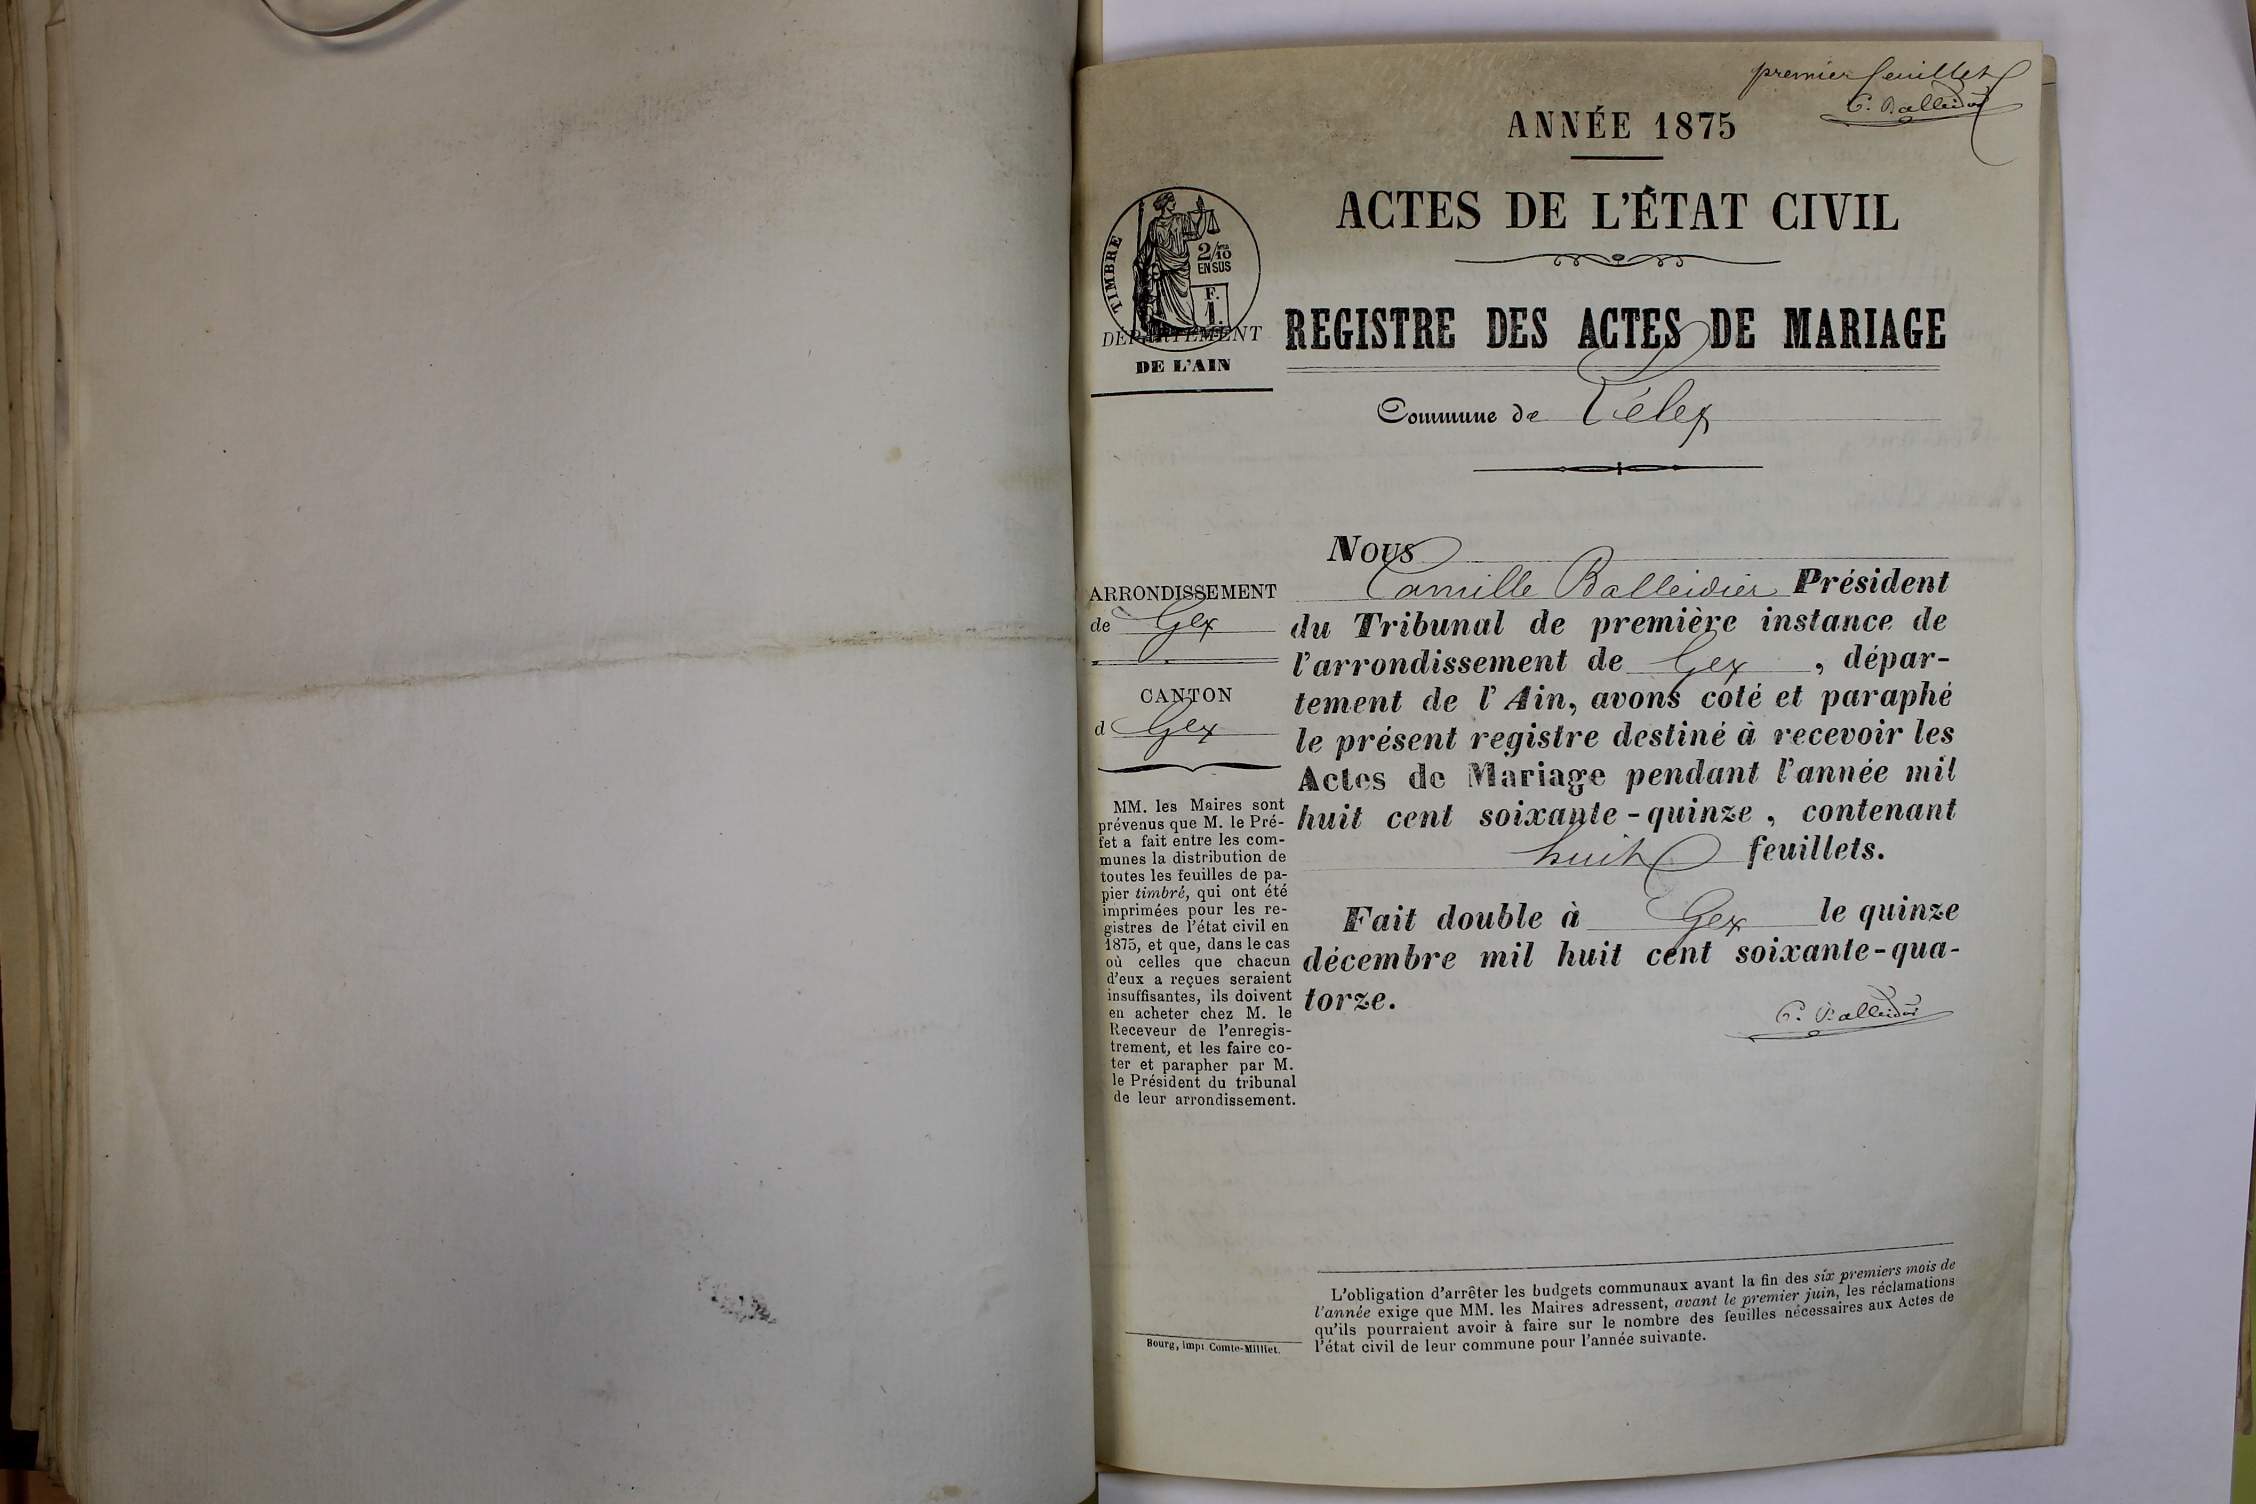 premier feuillet
C. Balleidier
ANNÉE 1875
ACTES DE L'ÉTAT CIVIL
TIMBRE
2/10
EN SUS
F.
1.
DÉPARTEMENT
DE L'AIN
REGISTRE DES ACTES DE MARIAGE
Commune de Lélex
ARRONDISSEMENT
de Gex
CANTON
d Gex
MM. les Maires sont
prévenus que M. le Pré-
fet a fait entre les com-
munes la distribution de
toutes les feuilles de pa-
pier timbré, qui ont été
imprimées pour les re-
gistres de l'état civil en
1875, et que, dans le cas
où celles que chacun
d'eux a reçues seraient
insuffisantes, ils doivent
en acheter chez M. le
Receveur de l'enregis-
trement, et les faire co-
ter et parapher par M.
le Président du tribunal
de leur arrondissement.
Nous
Camille Balleidier Président
du Tribunal de première instance de
l'arrondissement de Gex, dépar-
tement de l'Ain, avons coté et paraphé
le présent registre destiné à recevoir les
Actes de Mariage pendant l'année mil
huit cent soixante-quinze, contenant
huit feuillets.
Fait double à Gex le quinze
décembre mil huit cent soixante-qua-
torze.
C. Balleidier
L'obligation d'arrêter les budgets communaux avant la fin des six premiers mois de
l'année exige que MM. les Maires adressent, avant le premier juin, les réclamations
qu'ils pourraient avoir à faire sur le nombre des feuilles nécessaires aux Actes de
l'état civil de leur commune pour l'année suivante.
Bourg, impr. Comte-Milliet.